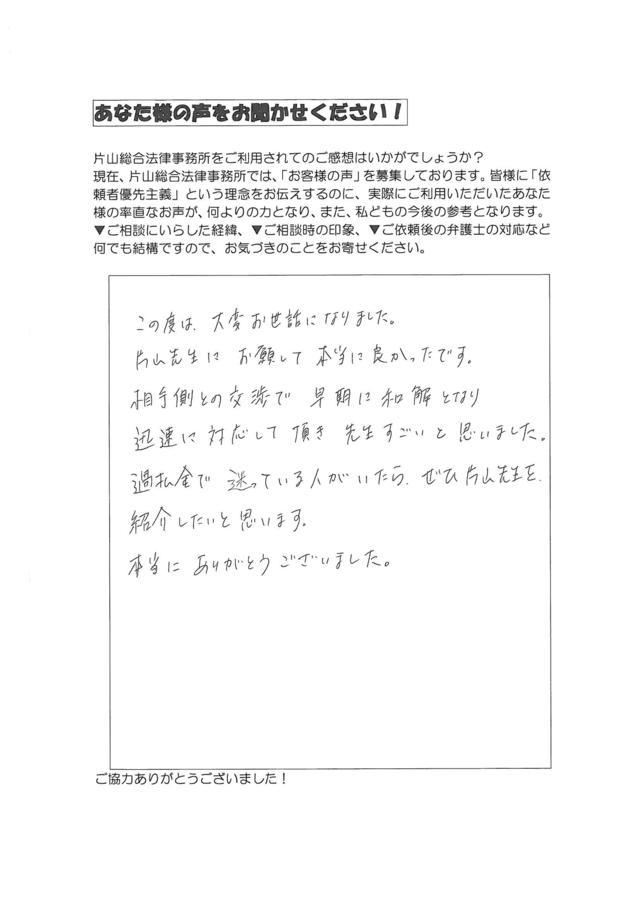 あなた様の声をお聞かせください！
片山総合法律事務所をご利用されてのご感想はいかがでしょうか？
現在、片山総合法律事務所では、「お客様の声」を募集しております。皆様に「依
頼者優先主義」という理念をお伝えするのに、実際にご利用いただいたあなた
様の率直なお声が、何よりの力となり、また、私どもの今後の参考となります。
▼ご相談にいらした経緯、▼ご相談時の印象、▼ご依頼後の弁護士の対応など
何でも結構ですので、お気づきのことをお寄せください。
この度は、大変お世話になりました。
片山先生に お願して 本当に良かったです。
相手側との交渉で 早期に和解となり
迅速に対応して頂き 先生すごいと思いました。
過払金で 迷っている人がいたら、ぜひ片山先生を、
紹介したいと思います。
本当に ありがとうございました。
ご協力ありがとうございました！